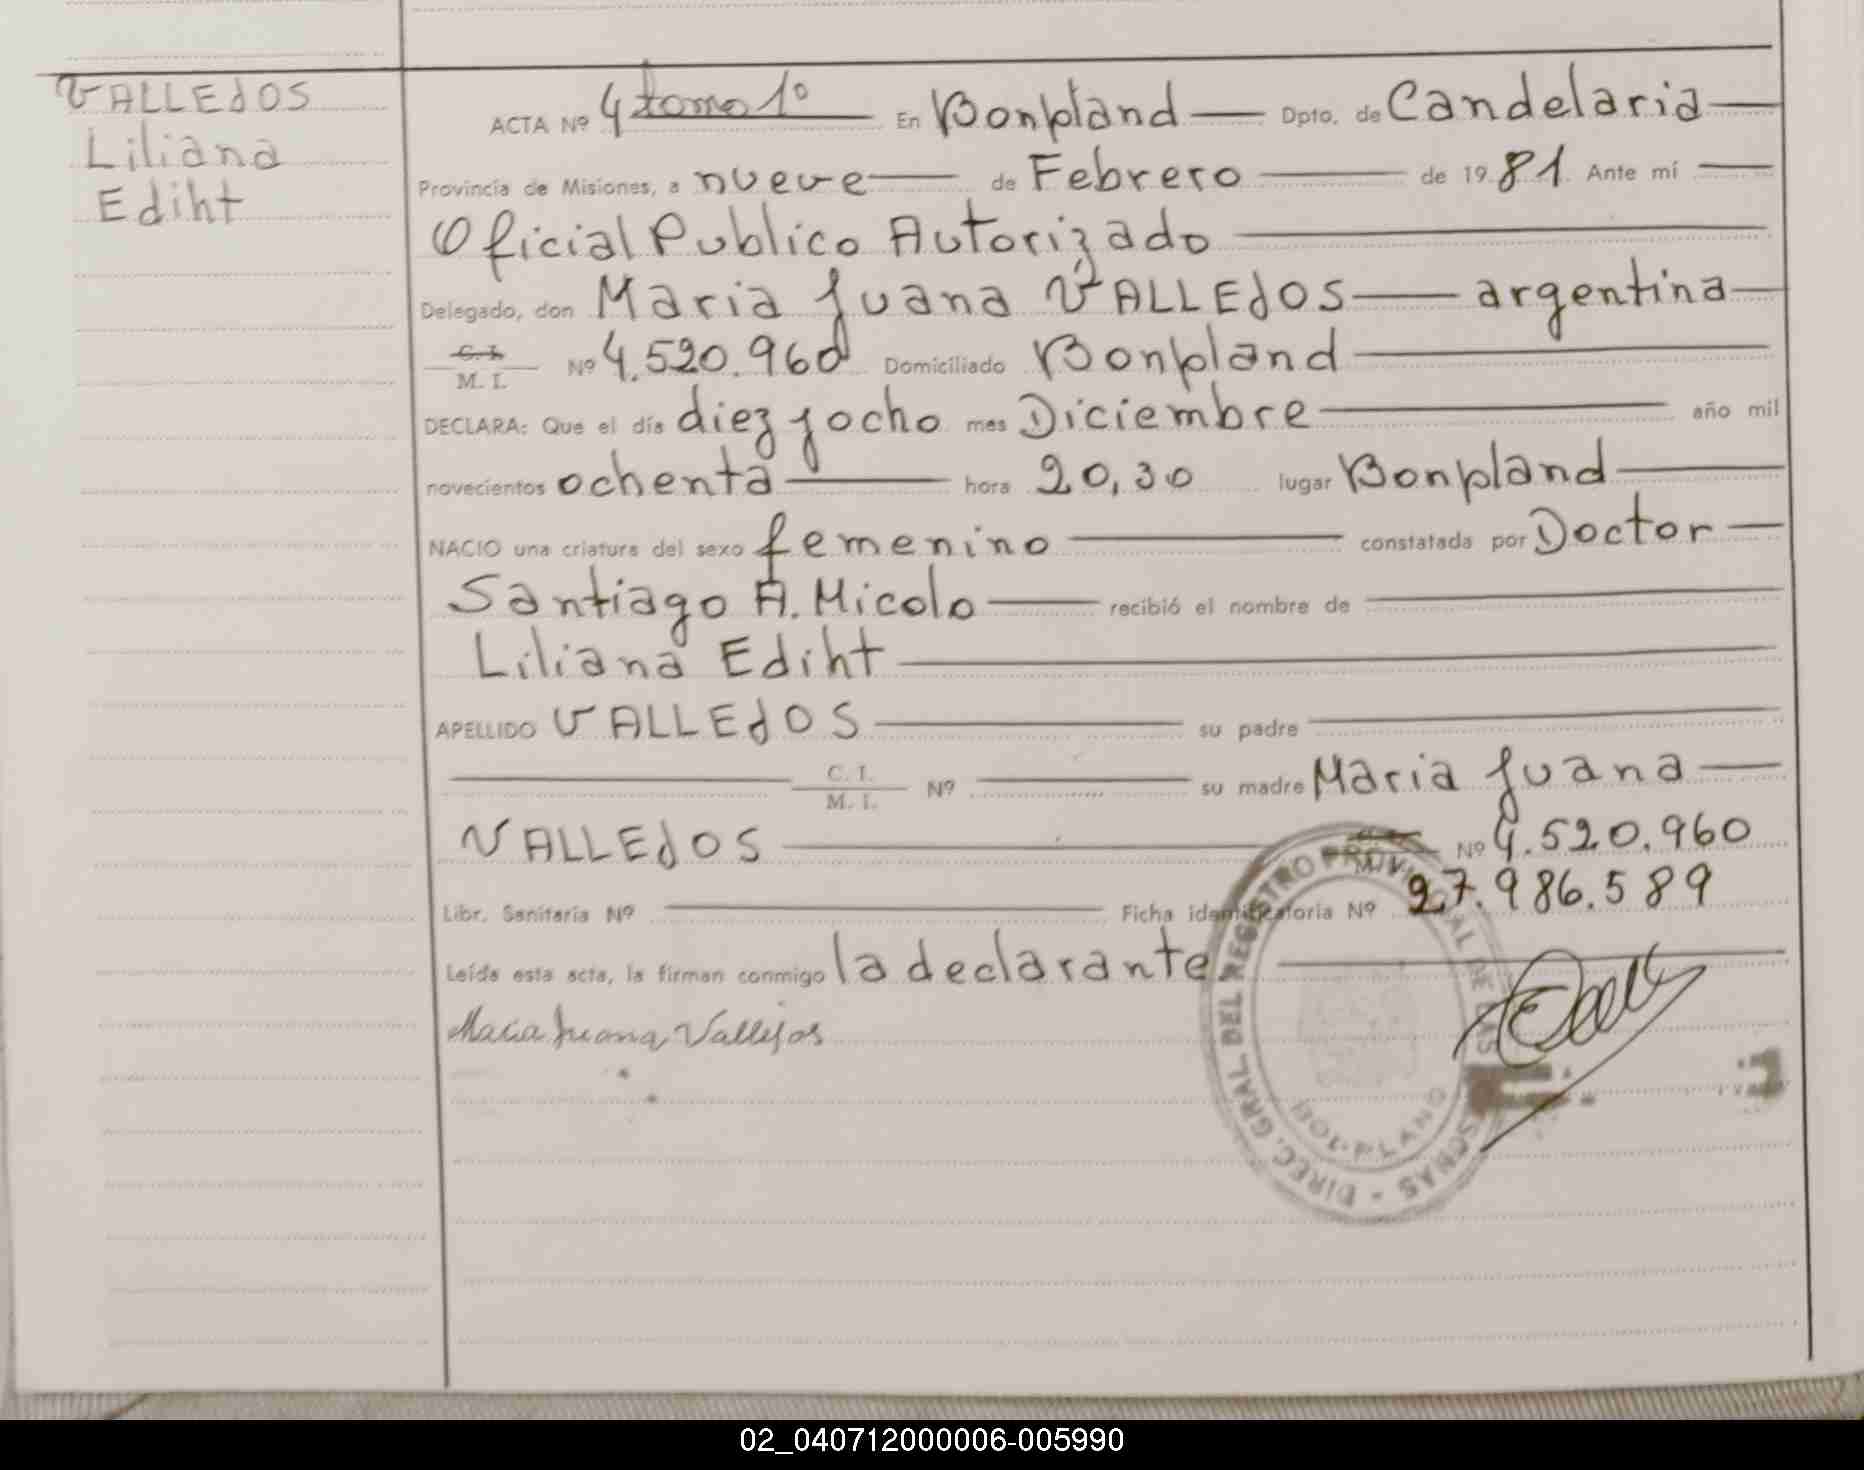 VALLEJOS
Liliana
Ediht
ACTA Nº 4 tomo 1º En Bonpland Dpto. de Candelaria
Provincia de Misiones, a nueve de Febrero de 1981. Ante mí
Oficial Publico Autorizado
Delegado, don Maria Juana VALLEJOS argentina
C. I.
M. I. Nº 4.520.960 Domiciliado Bonpland
DECLARA: Que el día diez y ocho mes Diciembre año mil
novecientos ochenta hora 20,30 lugar Bonpland
NACIO una criatura del sexo femenino constatada por Doctor
Santiago A. Micolo recibió el nombre de
Liliana Ediht
APELLIDO VALLEJOS su padre
C. I.
M. I. Nº su madre Maria Juana
VALLEJOS Nº 4.520.960
Libr. Sanitaria Nº Ficha identificatoria Nº 27.986.589
Leída esta acta, la firman conmigo la declarante
Maria Juana Vallejos
DIREC. GRAL DEL REGISTRO PROVINCIAL DE LAS
BONPLAND
02_040712000006-005990